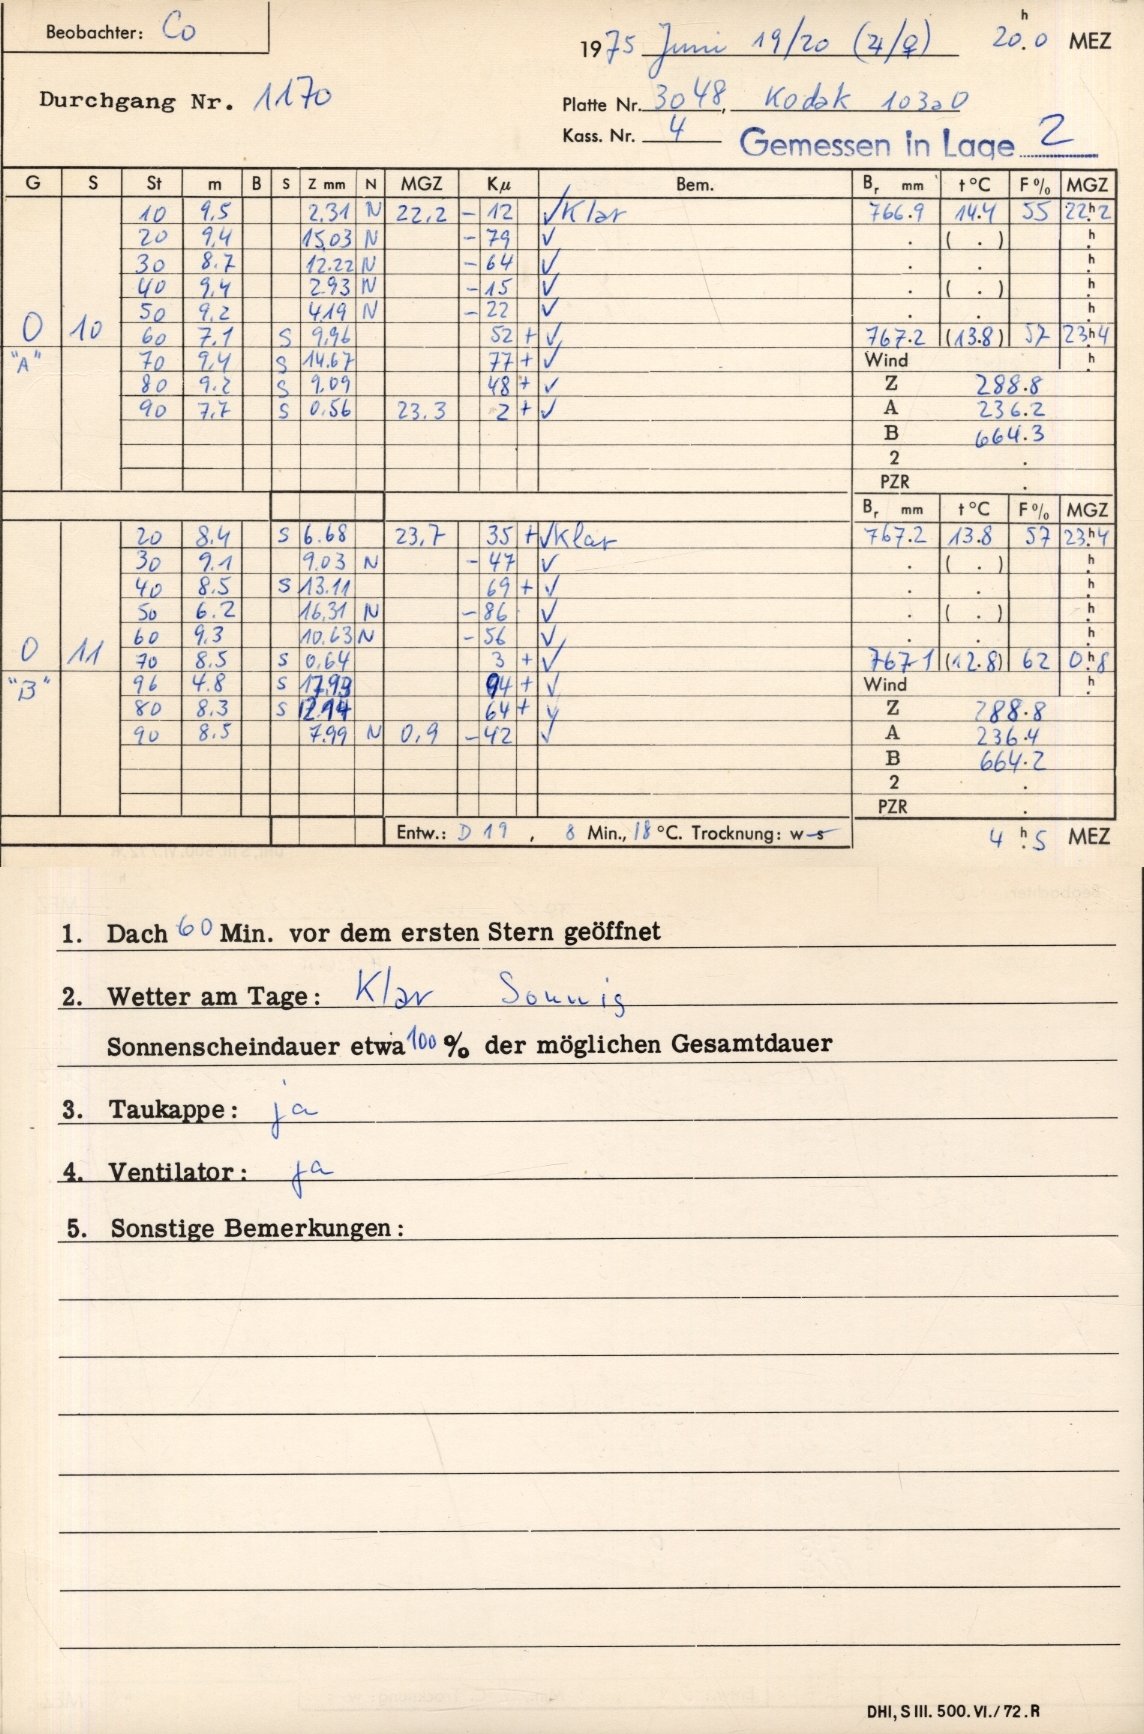 Beobachter: Co
1975 Juni 19/20 (♃/♀) 20.h0 MEZ
Durchgang Nr. 1170
Platte Nr. 3048, Kodak 103aO
Kass. Nr. 4 Gemessen in Lage 2
G S St m B S Z mm N MGZ Kμ Bem. Br mm t°C F% MGZ
10 9,5 2,31 N 22,2 - 12 ✓ Klar 766.9 14.4 55 22.h2
20 9,4 15,03 N - 79 ✓ . ( . ) .h
30 8.7 12.22 N - 64 ✓ . . .h
40 9,4 2.93 N - 15 ✓ . ( . ) .h
50 9,2 4,19 N - 22 ✓ . . .h
0 10 60 7,1 S 9,96 52 + ✓ 767.2 (13.8) 57 23.h4
"A" 70 9,4 S 14.67 77 + ✓ Wind .h
80 9.2 S 9,09 48 + ✓ Z 288.8
90 7,7 S 0,56 23,3 2 + ✓ A 236.2
B 664.3
2 .
PZR .
Br mm t°C F% MGZ
20 8,4 S 6.68 23,7 35 + ✓ Klar 767.2 13.8 57 23.h4
30 9.1 9.03 N - 47 ✓ . ( . ) .h
40 8.5 S 13.11 69 + ✓ . . .h
50 6.2 16,31 N - 86 ✓ . ( . ) .h
60 9,3 10.63 N - 56 ✓ . . .h
0 11 70 8,5 S 0,64 3 + ✓ 767.1 (12.8) 62 0.h8
"B" 96 4.8 S 17,93 94 + ✓ Wind .h
80 8,3 S 12.14 64 + ✓ Z 288.8
90 8.5 7.99 N 0,9 - 42 ✓ A 236.4
B 664.2
2 .
PZR .
Entw.: D 19 , 8 Min., 18 °C. Trocknung: w s 4.h5 MEZ
1. Dach 60 Min. vor dem ersten Stern geöffnet
2. Wetter am Tage: Klar Sonnig
Sonnenscheindauer etwa 100 % der möglichen Gesamtdauer
3. Taukappe: ja
4. Ventilator: ja
5. Sonstige Bemerkungen:
DHI, S III. 500. VI./72. R